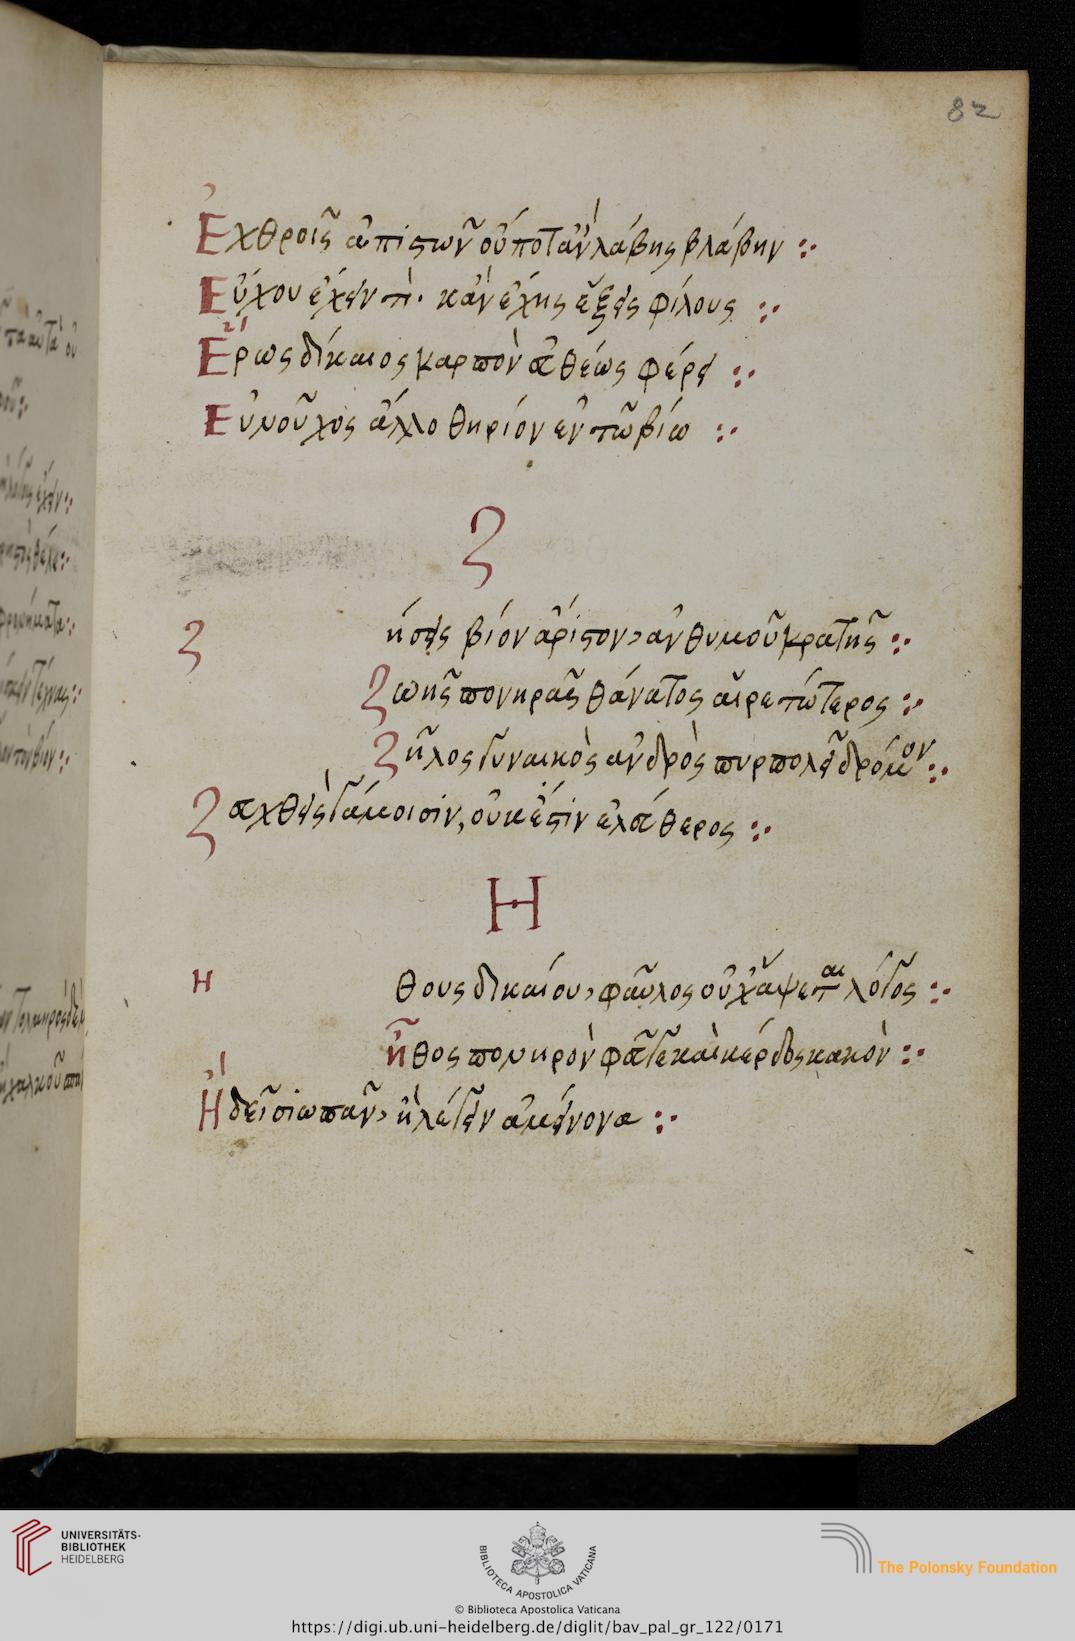 82
Ἐχθροῖς ἀπιστῶν οὔποτ' ἂν λάβης βλάβην
Εὔχου ἔχειν τὶ. κἂν ἔχης ἕξεις φίλους
Ἔρως δίκαιος καρπὸν εὐθέως φέρει
Εὐνοῦχος ἄλλο θηρίον ἐν τῶ βίω
Ζ
Ζήσεις βίον ἄριστον, ἂν θυμοῦ κρατῆς
Ζωῆς πονηρᾶς θάνατος αἱρετώτερος
Ζῆλος γυναικὸς ἀνδρὸς πυρπολεῖ δρόμον
Ζευχθεὶς γάμοισιν, οὐκ ἔστιν ἐλεύθερος
Η
Ηθους δικαίου, φαῦλος οὐ ψαύει λόγος
ἦθος πονηρὸν φεῦγε καὶ κέρδος κακὸν
Ἢ δεῖ σιωπᾶν, ἢ λέγειν ἀμείνονα
UNIVERSITÄTS-
BIBLIOTHEK
HEIDELBERG
BIBLIOTECA APOSTOLICA VATICANA
The Polonsky Foundation
© Biblioteca Apostolica Vaticana
https://digi.ub.uni-heidelberg.de/diglit/bav_pal_gr_122/0171